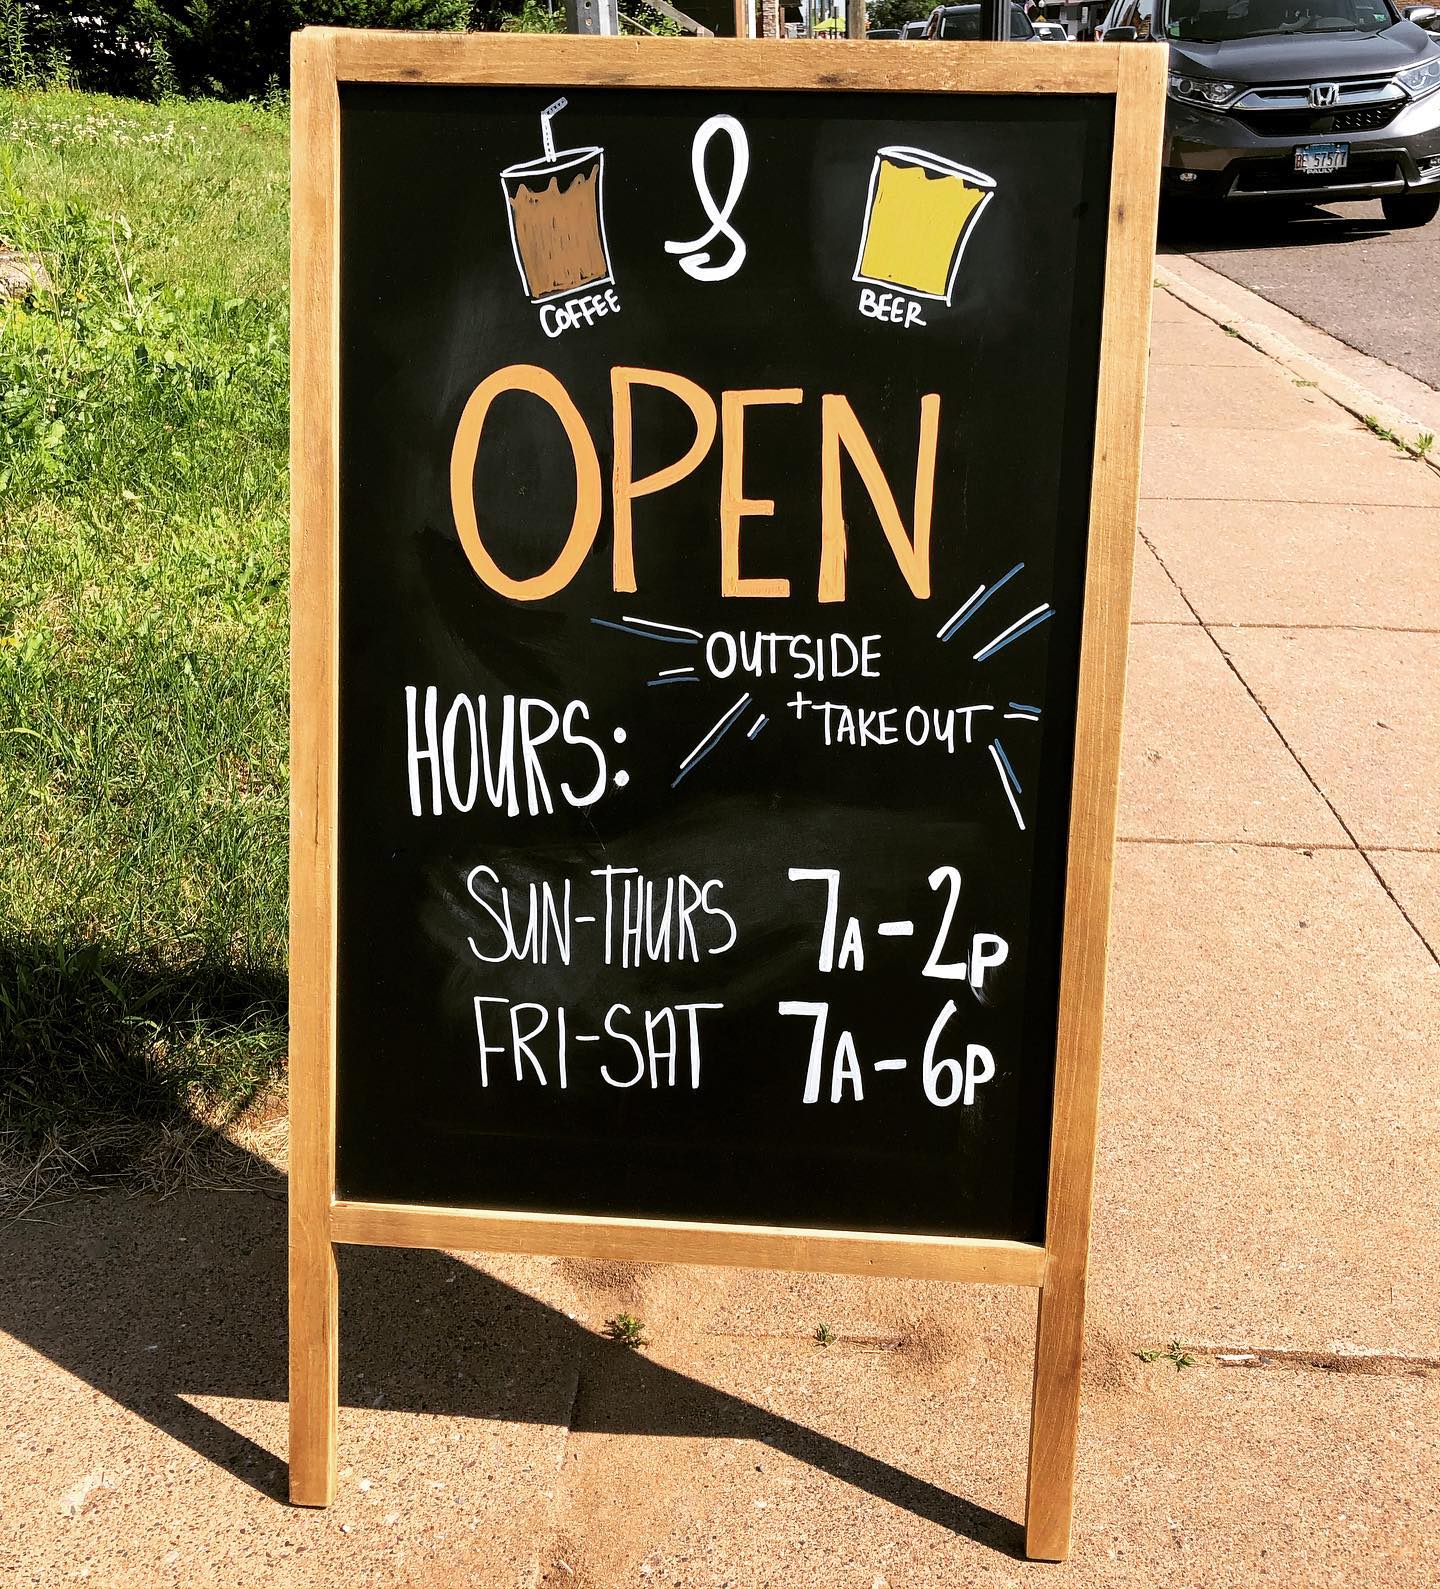 &
COFFEE
BEER
OPEN
OUTSIDE
+TAKEOUT
HOURS:
SUN-THURS 7A-2P
FRI-SAT 7A-6P
PAULY